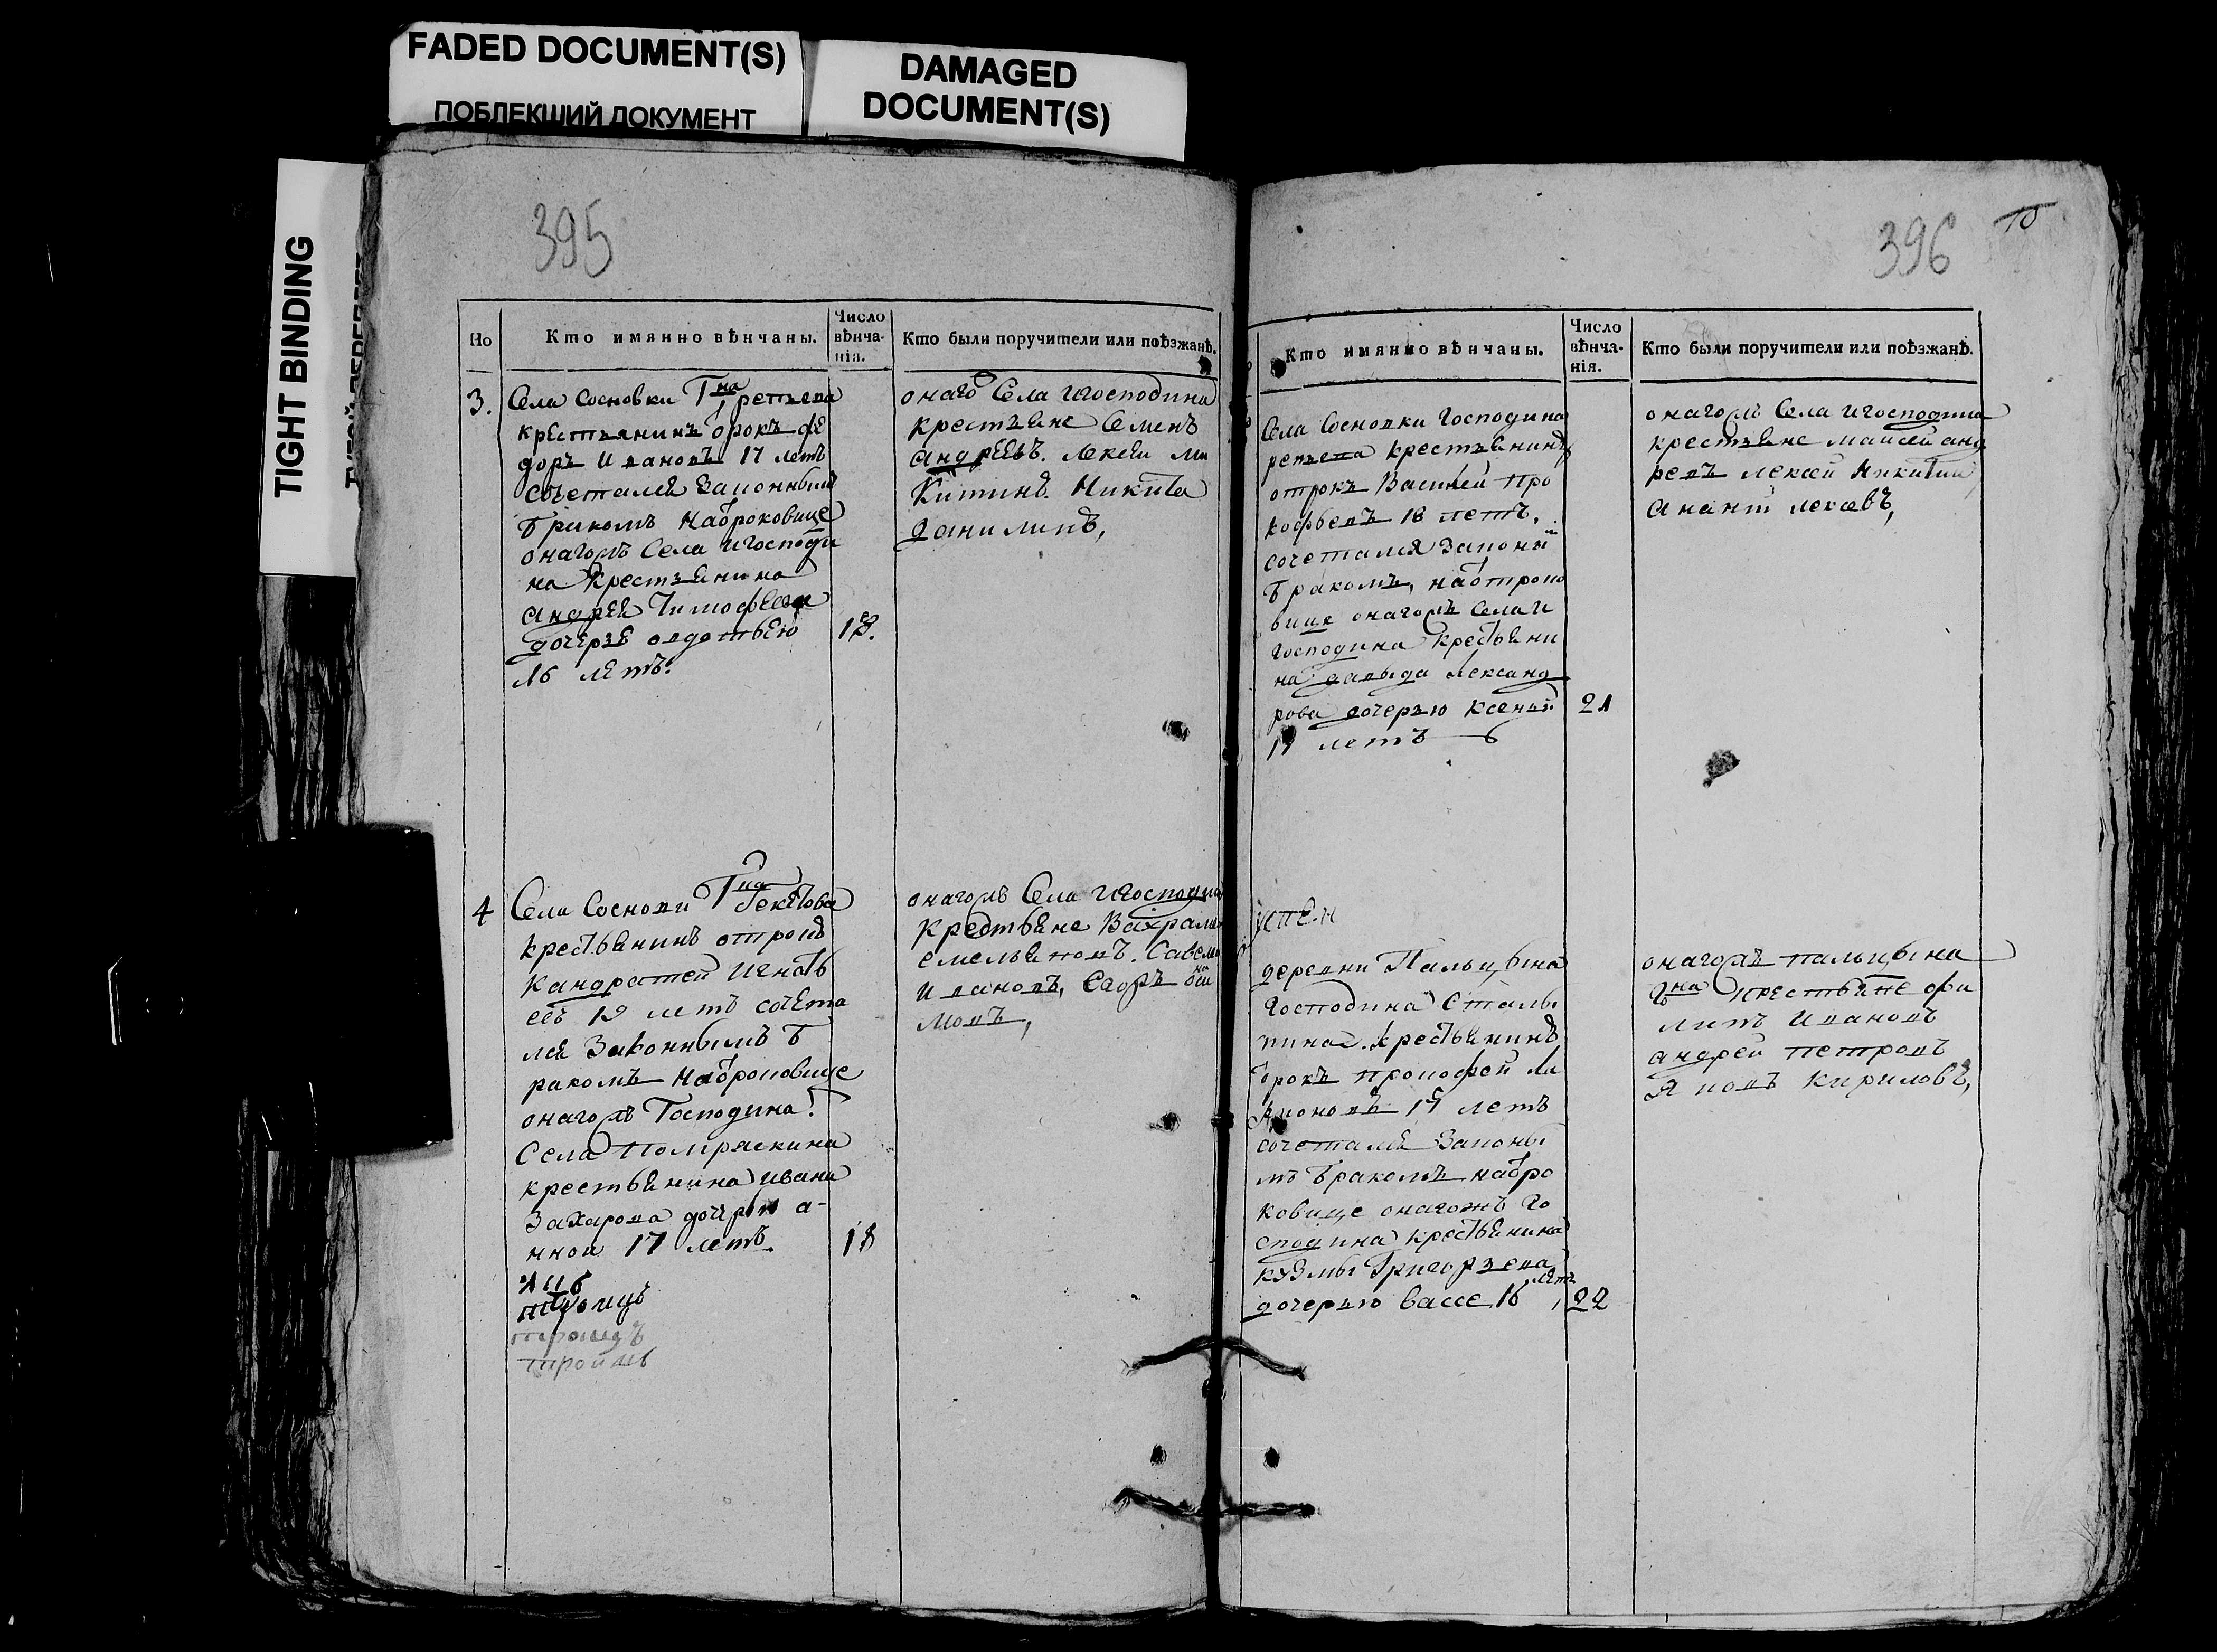 FADED DOCUMENT(S)
ПОБЛЕКШИЙ ДОКУМЕНТ
DAMAGED
DOCUMENT(S)
TIGHT BINDING
395
Но
Кто имянно вѣнчаны.
Число вѣнча-нія.
Кто были поручители или поѣзжанѣ.
3. Села Сосновки Гна
крестьянинъ отрокъ фе
доръ Ивановъ 17 летъ
сочетался законнымъ
бракомъ на отроковице
онагожъ Села и господи
на крестьянина
Андрея Тимофеева
дочерью овдотьею
16 летъ.
18.
онаго Села и господина
крестьяне Семенъ
Андреевъ. Лексеи Ни
Китинъ. Никита
Данилинъ,
4 Села Сосновки Гна Бекетова
крестьянинъ отрокъ
Кандратей Игнать
евъ 19 летъ сочета
лся Законнымъ б
ракомъ на отроковице
онагожъ Господина
Села Помряскина
крестьянина Ивана
Захарова дочерью а-
нной 17 летъ
18
онагожъ Села и господина
крестьяне
емельяновъ. Савелий
Ивановъ, Егоръ
троицъ
396
Кто имянно вѣнчаны.
Число вѣнча-нія.
Кто были поручители или поѣзжанѣ.
Села Сосновки Господина
крестьянинъ
отрокъ Василей Про
кофьевъ 18 летъ,
сочетался законы
бракомъ, на отроко
вице онагожъ Села и
господина крестьяни
на давыда Александ
рова дочерью ксеньей
17 летъ
21
онагожъ Села и господина
крестьяне Маисей анд
ревъ лексей Никитин
деревни Пальцына
Господина Столы
пина крестьянинъ
отрокъ прокофей ла
рионовъ 17 летъ
сочетался Законы
мъ бракомъ на отро
ковице онагожъ го
сподина крестьянина
кузмы Григорьева
дочерью вассе 16 летъ,
22
онагожъ пальцына
Гна крестьяне фи
липъ Ивановъ
андрей петровъ
Яковъ Кириловъ,